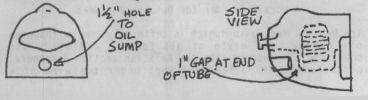 1½" HOLE
TO
OIL
SUMP
SIDE
VIEW
1" GAP AT END
OF TUBE